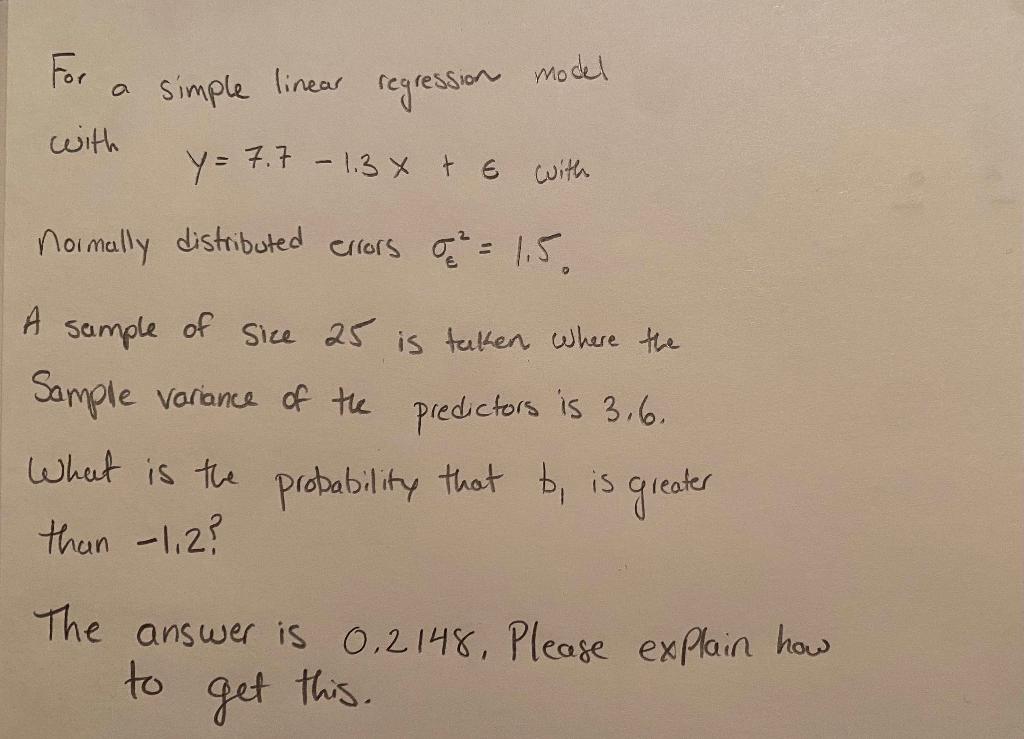 For a simple linear regression model
with y = 7.7 - 1.3 x + ϵ with
Normally distributed errors σ_ϵ² = 1.5.
A sample of size 25 is taken where the
Sample variance of the predictors is 3.6.
What is the probability that b₁ is greater
than -1.2?
The answer is 0.2148. Please explain how
to get this.